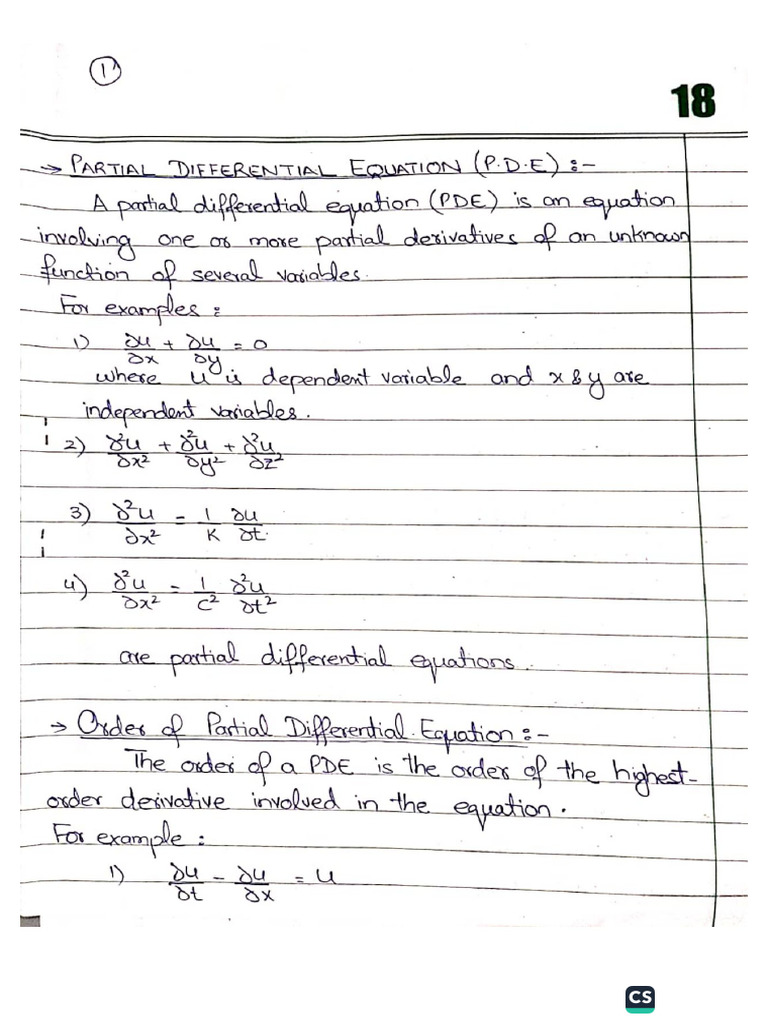 1
18
→ PARTIAL DIFFERENTIAL EQUATION (P.D.E) :-
A partial differential equation (PDE) is an equation
involving one or more partial derivatives of an unknown
function of several variables.
For examples :
1) ∂u/∂x + ∂u/∂y = 0
where u is dependent variable and x & y are
independent variables.
2) ∂²u/∂x² + ∂²u/∂y² + ∂²u/∂z²
3) ∂²u/∂x² = 1/K ∂u/∂t.
4) ∂²u/∂x² = 1/c² ∂²u/∂t²
are partial differential equations.
→ Order of Partial Differential Equation :-
The order of a PDE is the order of the highest-
order derivative involved in the equation.
For example :
1) ∂u/∂t - ∂u/∂x = u
CS